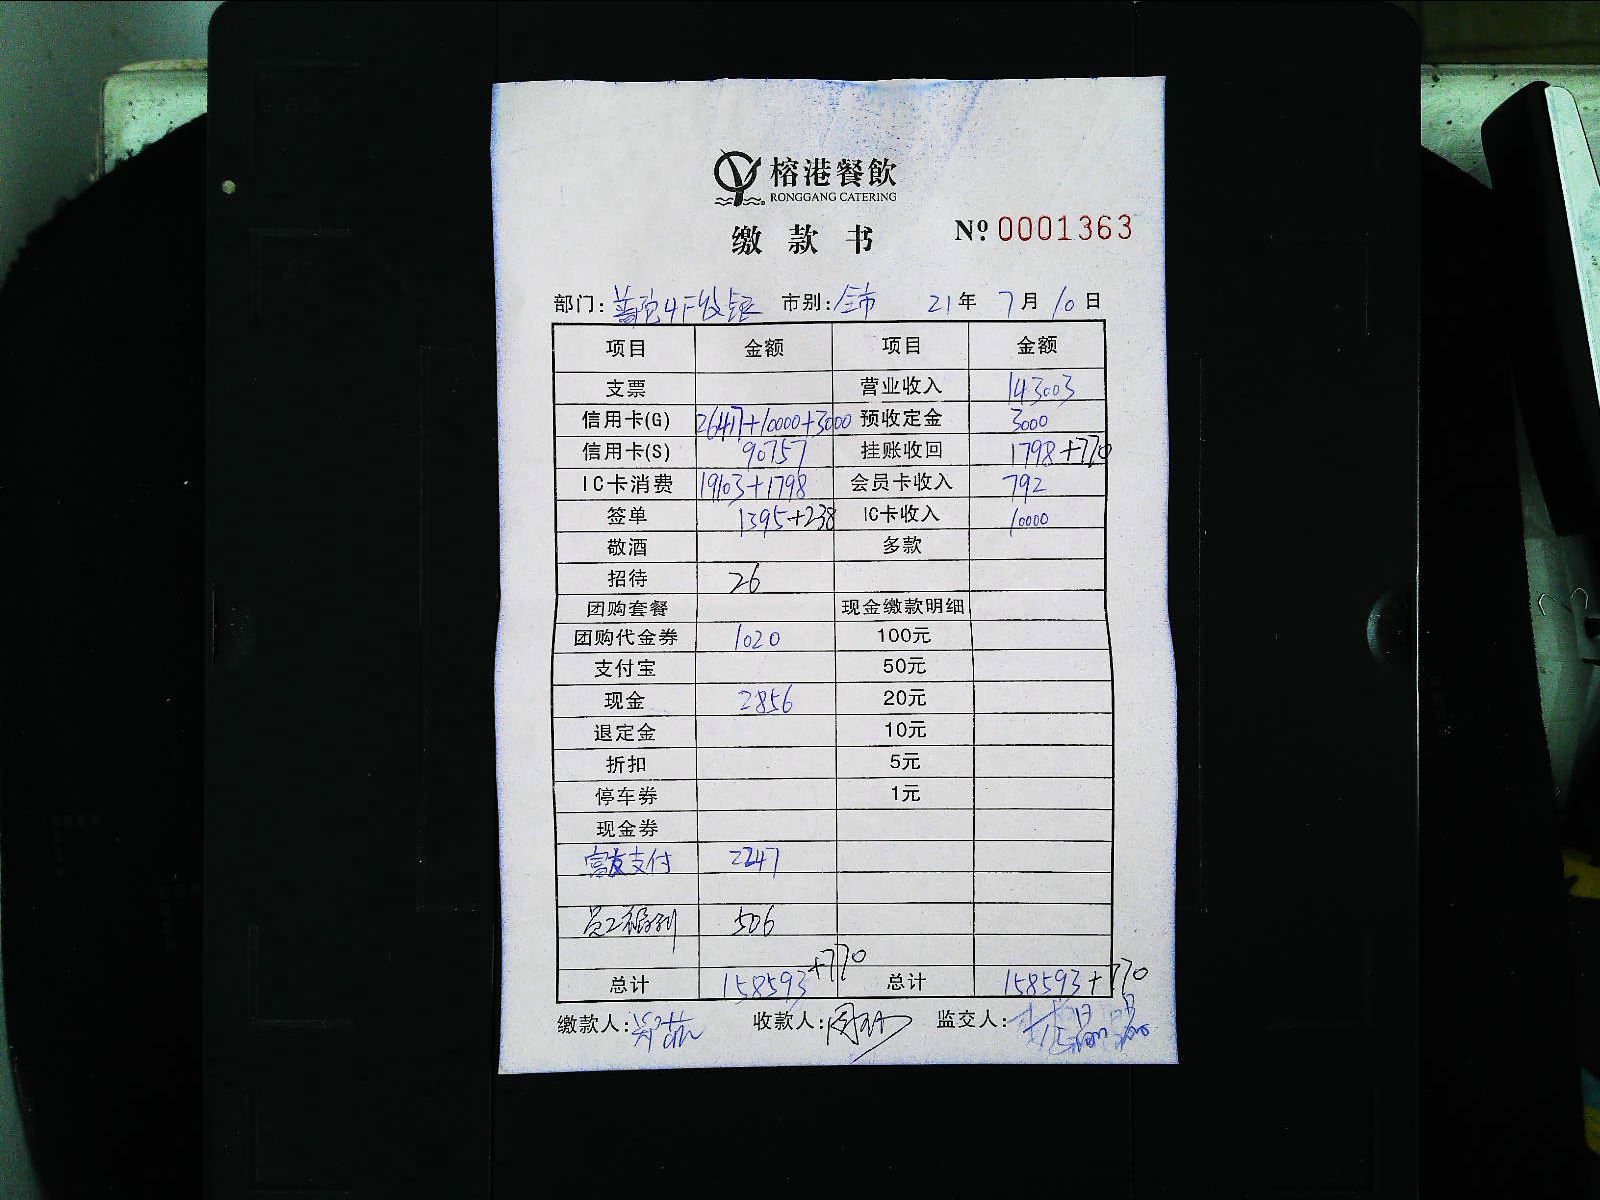 榕港餐飲
RONGGANG CATERING
缴款书 № 0001363
部门: 普陀4F收银 市别: 全市 21年 7月 10日
项目 金额 项目 金额
支票 营业收入 143003
信用卡(G) 26417+10000+3000 预收定金 3000
信用卡(S) 90757 挂账收回 1798+770
IC卡消费 19103+1798 会员卡收入 792
签单 1395+238 IC卡收入 10000
敬酒 多款
招待 26
团购套餐 现金缴款明细
团购代金券 1020 100元
支付宝 50元
现金 2856 20元
退定金 10元
折扣 5元
停车券 1元
现金券
富友支付 2247
员工福利 506
总计 158593+770 总计 158593+770
缴款人: 收款人: 监交人: